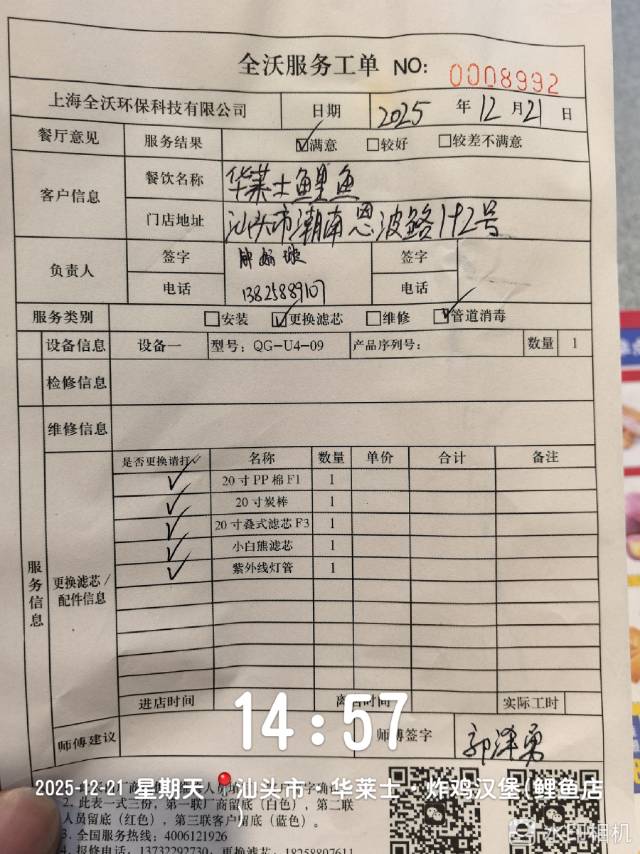 全沃服务工单 NO: 0008992
上海全沃环保科技有限公司 日期 2025 年 12 月 21 日
餐厅意见 服务结果 ☑满意 □较好 □较差不满意
客户信息 餐饮名称 华莱士鲤鱼
门店地址 汕头市潮南恩波路142号
负责人 签字 签字
电话 13825889107 电话
服务类别 □安装 ☑更换滤芯 □维修 ☑管道消毒
设备信息 设备一 型号：QG-U4-09 产品序列号： 数量 1
检修信息
维修信息
服务信息
更换滤芯/配件信息
是否更换请打✓ 名称 数量 单价 合计 备注
✓ 20寸PP棉F1 1
✓ 20寸炭棒 1
✓ 20寸叠式滤芯F3 1
✓ 小白熊滤芯 1
✓ 紫外线灯管 1
进店时间 时间 实际工时
14:57
师傅建议 师傅签字 郭泽勇
2025-12-21 星期天 汕头市·华莱士·炸鸡汉堡(鲤鱼店)
2、此表一式三份，第一联厂商留底（白色），第二联
人员留底（红色），第三联客户留底（蓝色）。
3、全国服务热线：4006121926
4、报修电话：13732292730，更换滤芯：18258807611
水印相机